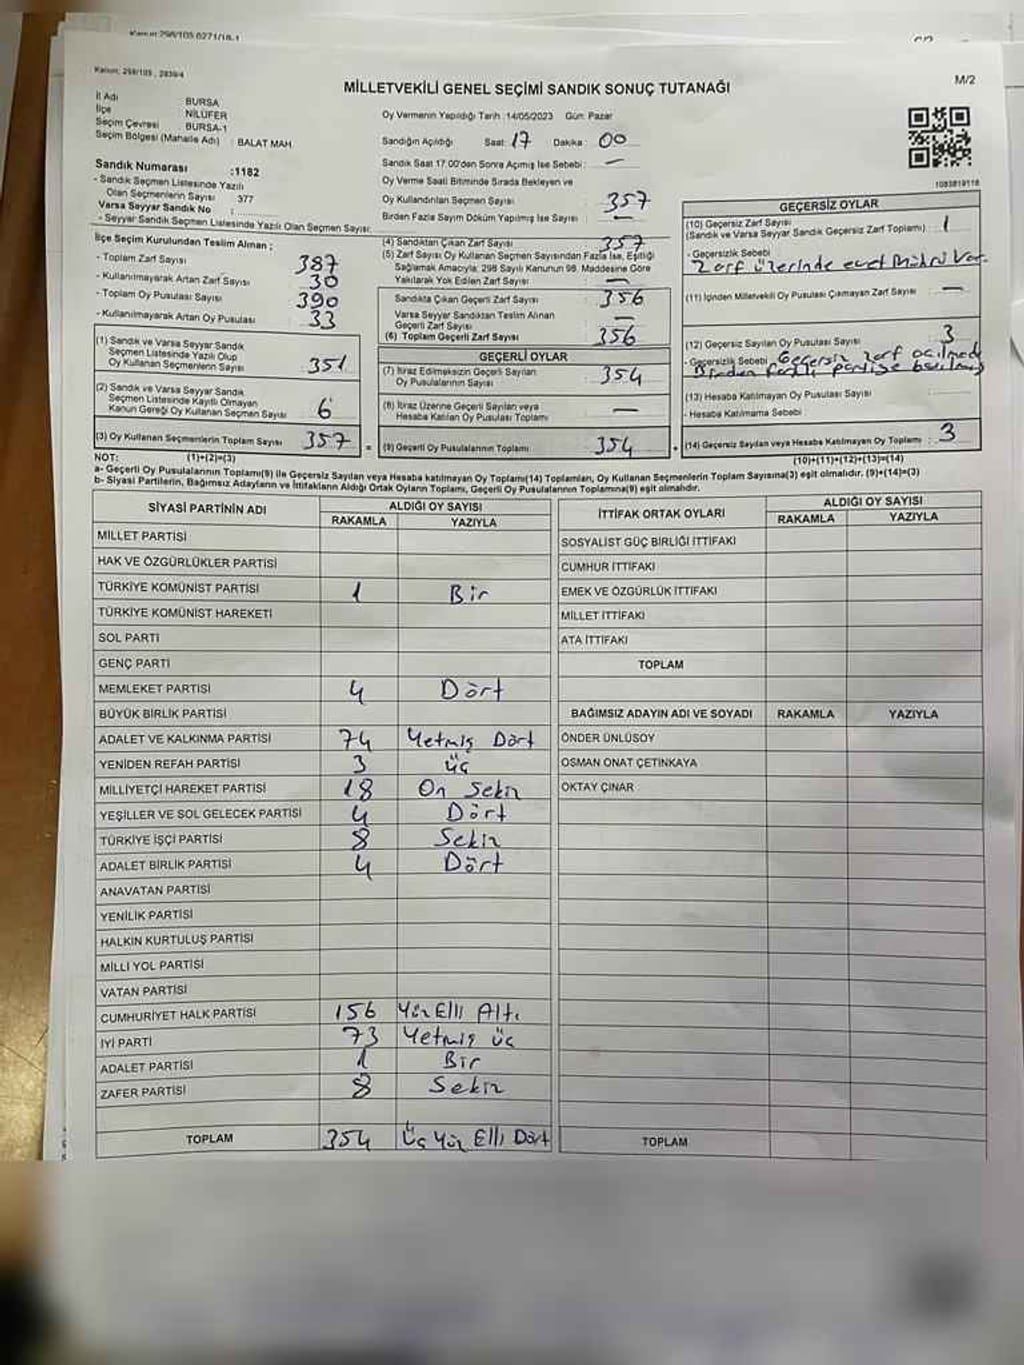 Kanun: 298/105 6271/18-1
Kanun: 298/105 , 2839/4
MİLLETVEKİLİ GENEL SEÇİMİ SANDIK SONUÇ TUTANAĞI
M/2
İl Adı BURSA
İlçe NİLÜFER
Seçim Çevresi BURSA-1
Seçim Bölgesi (Mahalle Adı) : BALAT MAH.
Sandık Numarası :1182
- Sandık Seçmen Listesinde Yazılı
Olan Seçmenlerin Sayısı 377
Varsa Seyyar Sandık No :
- Seyyar Sandık Seçmen Listesinde Yazılı Olan Seçmen Sayısı:
Oy Vermenin Yapıldığı Tarih :14/05/2023 Gün: Pazar
Sandığın Açıldığı Saat: 17 Dakika : 00
Sandık Saat 17.00'den Sonra Açımış İse Sebebi : —
Oy Verme Saati Bitiminde Sırada Bekleyen ve
Oy Kullandırılan Seçmen Sayısı : 357
Birden Fazla Sayım Döküm Yapılmış İse Sayısı : —
1083819118
İlçe Seçim Kurulundan Teslim Alınan ;
- Toplam Zarf Sayısı 387
- Kullanılmayarak Artan Zarf Sayısı 30
- Toplam Oy Pusulası Sayısı 390
- Kullanılmayarak Artan Oy Pusulası : 33
(1) Sandık ve Varsa Seyyar Sandık
Seçmen Listesinde Yazılı Olup
Oy Kullanan Seçmenlerin Sayısı 351
(2) Sandık ve Varsa Seyyar Sandık
Seçmen Listesinde Kayıtlı Olmayan
Kanun Gereği Oy Kullanan Seçmen Sayısı : 6
(3) Oy Kullanan Seçmenlerin Toplam Sayısı 357 =
(4) Sandıktan Çıkan Zarf Sayısı 357
(5) Zarf Sayısı Oy Kullanan Seçmen Sayısından Fazla İse, Eşitliği
Sağlamak Amacıyla; 298 Sayılı Kanunun 98. Maddesine Göre
Yakılarak Yok Edilen Zarf Sayısı : —
Sandıkta Çıkan Geçerli Zarf Sayısı : 356
Varsa Seyyar Sandıktan Teslim Alınan
Geçerli Zarf Sayısı : —
(6) Toplam Geçerli Zarf Sayısı : 356
GEÇERLİ OYLAR
(7) İtiraz Edilmeksizin Geçerli Sayılan
Oy Pusulalarının Sayısı : 354
(8) İtiraz Üzerine Geçerli Sayılan veya
Hesaba Katılan Oy Pusulası Toplamı : —
(9) Geçerli Oy Pusulalarının Toplamı : 354
GEÇERSİZ OYLAR
(10) Geçersiz Zarf Sayısı
(Sandık ve Varsa Seyyar Sandık Geçersiz Zarf Toplamı) : 1
- Geçersizlik Sebebi
Zarf üzerinde evet mührü var.
(11) İçinden Milletvekili Oy Pusulası Çıkmayan Zarf Sayısı : —
(12) Geçersiz Sayılan Oy Pusulası Sayısı : 3
- Geçersizlik Sebebi Geçersiz zarf açılmadı
Birden farklı partiye basılmış
(13) Hesaba Katılmayan Oy Pusulası Sayısı :
- Hesaba Katılmama Sebebi
+ (14) Geçersiz Sayılan veya Hesaba Katılmayan Oy Toplamı : 3
NOT: (1)+(2)=(3) (10)+(11)+(12)+(13)=(14)
a- Geçerli Oy Pusulalarının Toplamı(9) ile Geçersiz Sayılan veya Hesaba katılmayan Oy Toplamı(14) Toplamları, Oy Kullanan Seçmenlerin Toplam Sayısına(3) eşit olmalıdır. (9)+(14)=(3)
b- Siyasi Partilerin, Bağımsız Adayların ve İttifakların Aldığı Ortak Oyların Toplamı, Geçerli Oy Pusulalarının Toplamına(9) eşit olmalıdır.
SİYASİ PARTİNİN ADI ALDIĞI OY SAYISI
RAKAMLA YAZIYLA
MİLLET PARTİSİ
HAK VE ÖZGÜRLÜKLER PARTİSİ
TÜRKİYE KOMÜNİST PARTİSİ 1 Bir
TÜRKİYE KOMÜNİST HAREKETİ
SOL PARTİ
GENÇ PARTİ
MEMLEKET PARTİSİ 4 Dört
BÜYÜK BİRLİK PARTİSİ
ADALET VE KALKINMA PARTİSİ 74 Yetmiş Dört
YENİDEN REFAH PARTİSİ 3 üç
MİLLİYETÇİ HAREKET PARTİSİ 18 On Sekiz
YEŞİLLER VE SOL GELECEK PARTİSİ 4 Dört
TÜRKİYE İŞÇİ PARTİSİ 8 Sekiz
ADALET BİRLİK PARTİSİ 4 Dört
ANAVATAN PARTİSİ
YENİLİK PARTİSİ
HALKIN KURTULUŞ PARTİSİ
MİLLİ YOL PARTİSİ
VATAN PARTİSİ
CUMHURİYET HALK PARTİSİ 156 Yüz Elli Altı
İYİ PARTİ 73 Yetmiş üç
ADALET PARTİSİ 1 Bir
ZAFER PARTİSİ 8 Sekiz
TOPLAM 354 Üç Yüz Elli Dört
İTTİFAK ORTAK OYLARI ALDIĞI OY SAYISI
RAKAMLA YAZIYLA
SOSYALİST GÜÇ BİRLİĞİ İTTİFAKI
CUMHUR İTTİFAKI
EMEK VE ÖZGÜRLÜK İTTİFAKI
MİLLET İTTİFAKI
ATA İTTİFAKI
TOPLAM
BAĞIMSIZ ADAYIN ADI VE SOYADI RAKAMLA YAZIYLA
ÖNDER ÜNLÜSOY
OSMAN ONAT ÇETİNKAYA
OKTAY ÇINAR
TOPLAM